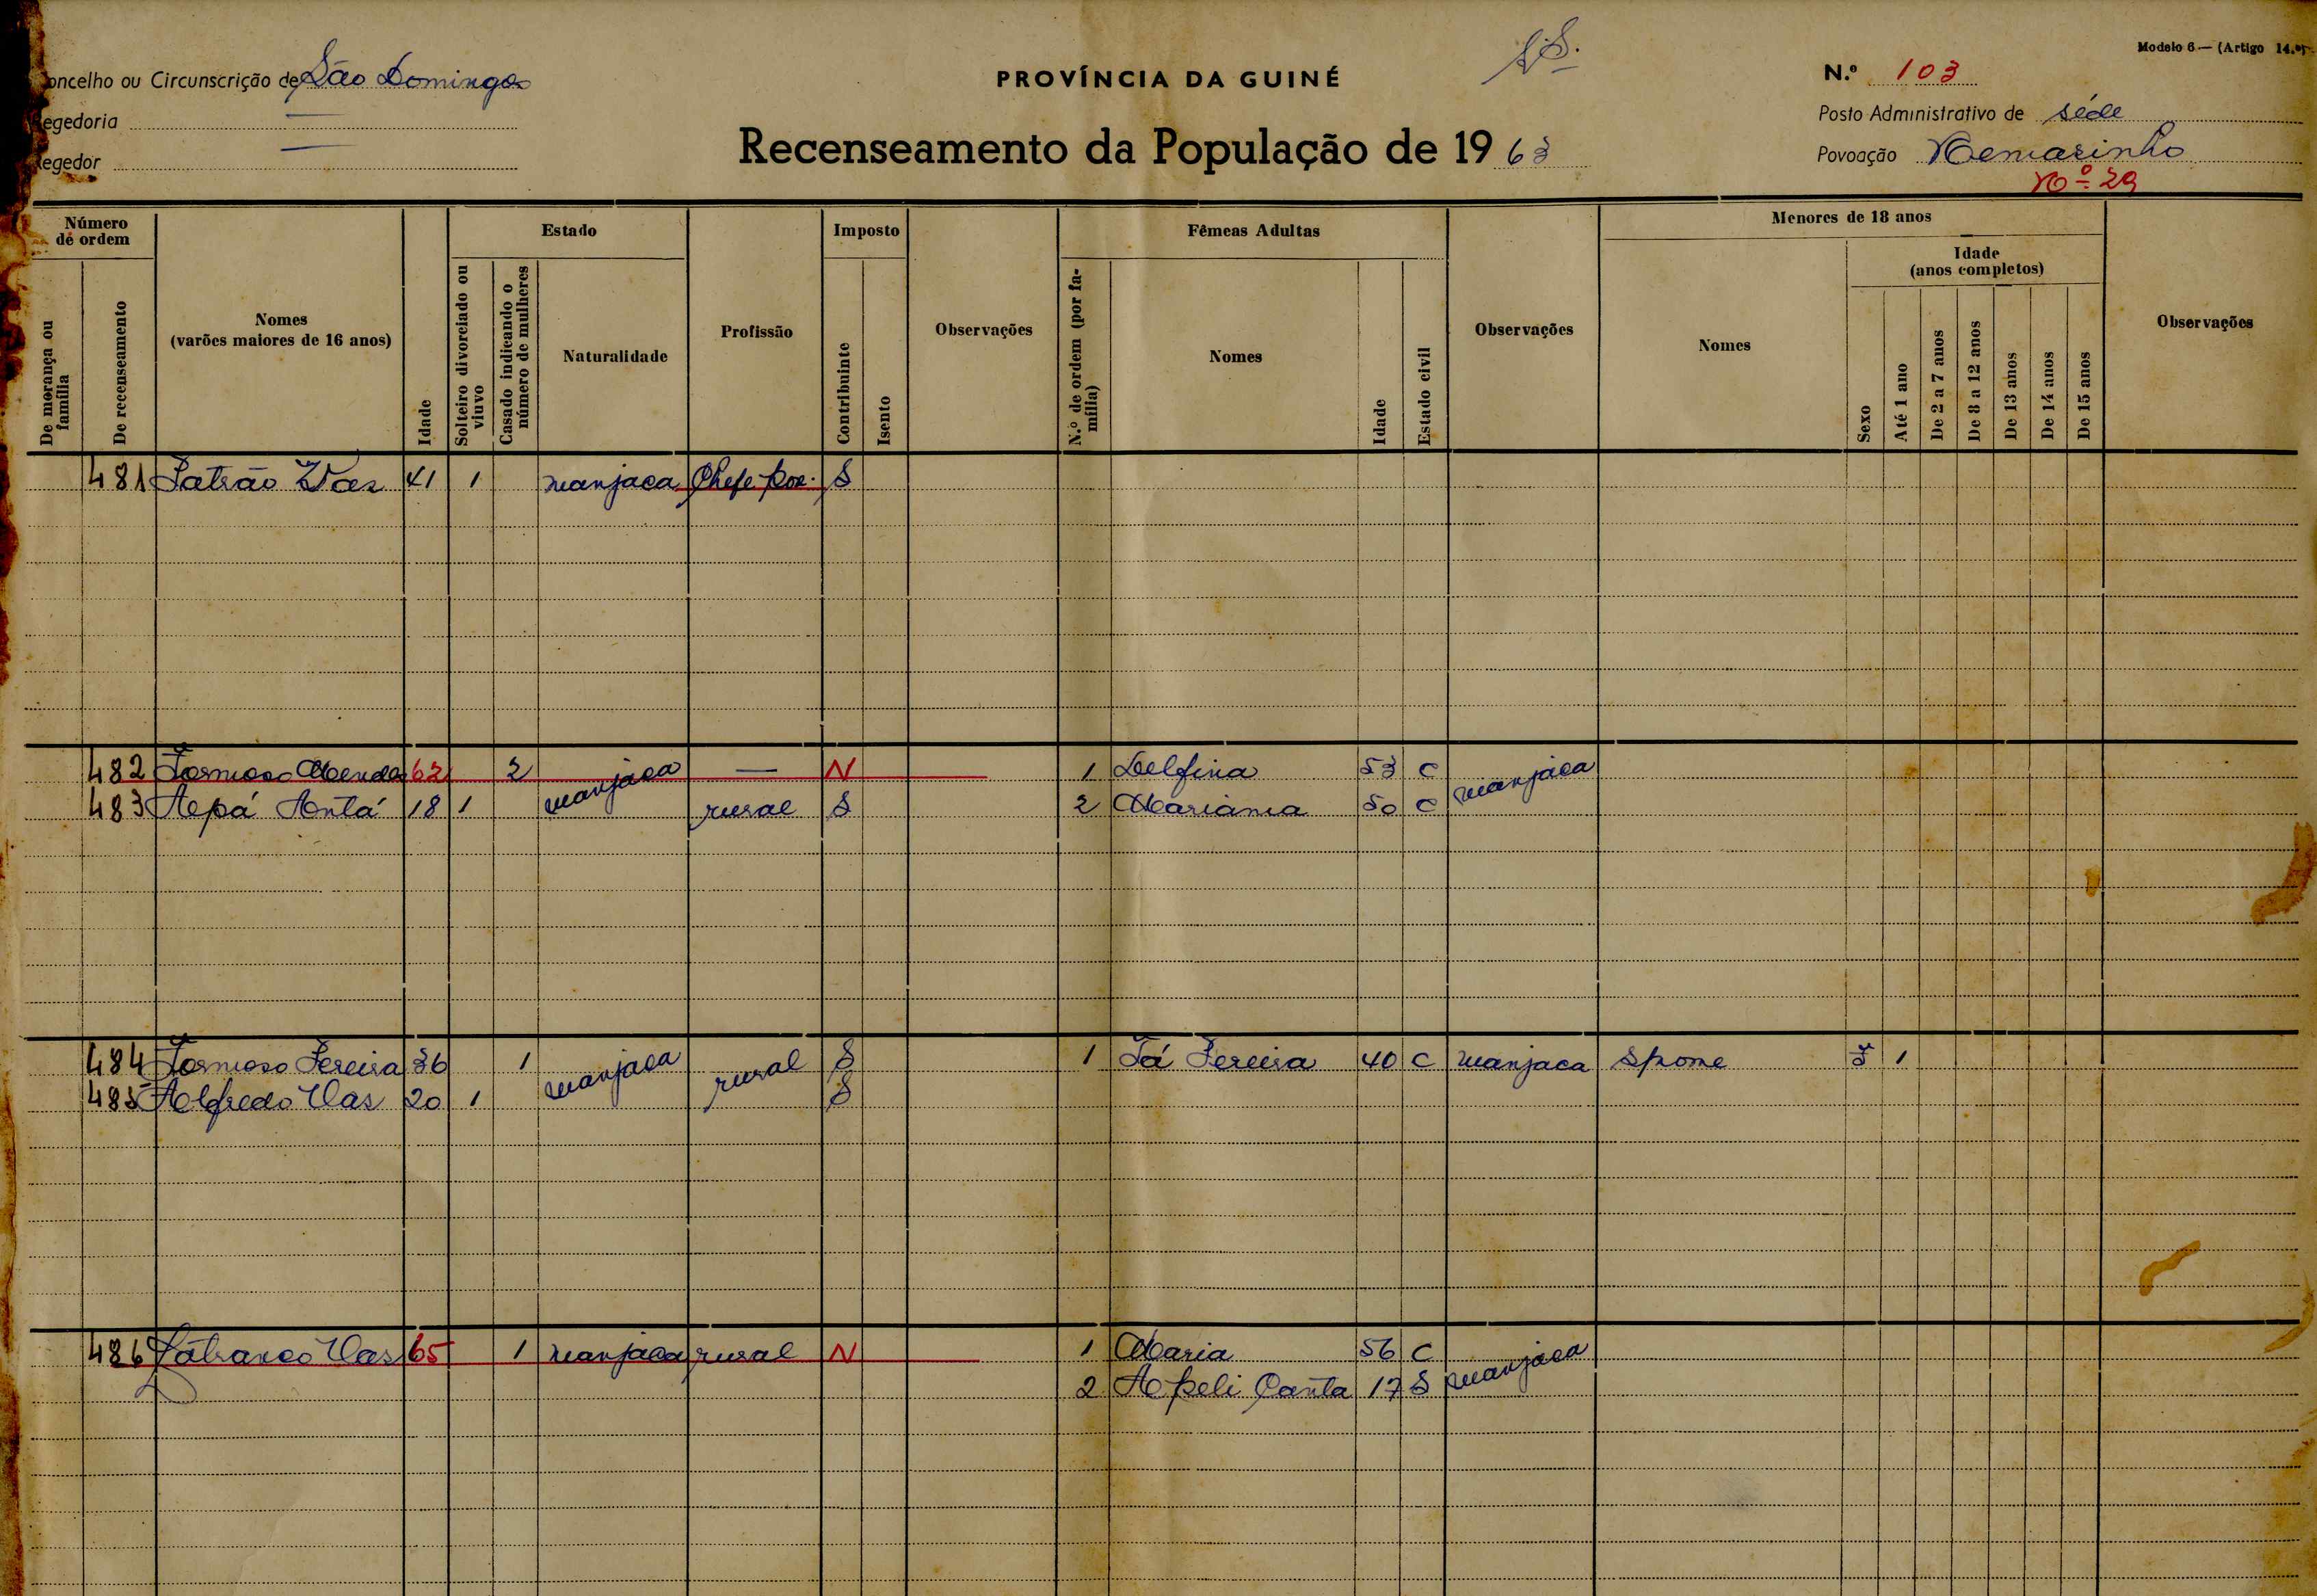 Modelo 6 — (Artigo 14.º)
Concelho ou Circunscrição de São Domingos
PROVÍNCIA DA GUINÉ
N.º 103
Regedoria —
Posto Administrativo de Séde
Regedor —
Recenseamento da População de 1963
Povoação Nemarinho
Nº 29
Número de ordem
Estado
Imposto
Fêmeas Adultas
Menores de 18 anos
Idade (anos completos)
De morança ou família
De recenseamento
Nomes (varões maiores de 16 anos)
Idade
Solteiro divorciado ou viuvo
Casado indicando o número de mulheres
Naturalidade
Profissão
Contribuinte
Isento
Observações
N.º de ordem (por família)
Nomes
Idade
Estado civil
Observações
Nomes
Sexo
Até 1 ano
De 2 a 7 anos
De 8 a 12 anos
De 13 anos
De 14 anos
De 15 anos
Observações
481 Patrão Vaz 41 1 manjaca Chefe S
482 Formoso Menda 62 2 manjaca — N 1 Delfina 53 C manjaca
483 Apá Antá 18 1 rural S 2 Mariama 50 C
484 Formoso Pereira 36 1 manjaca rural S 1 Tá Pereira 40 C manjaca Spome F 1
485 Alfredo Vaz 20 1 S
486 Patranco Vaz 65 1 manjaca rural N 1 Maria 56 C manjaca
2 Apeli Canta 17 S